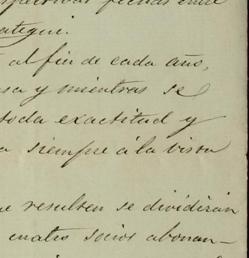 ategui.
al fin de cada año,
sa y mientras se
toda exactitud y
a siempre á la vista
ue resulten se dividirán
cuatro socios abonan-